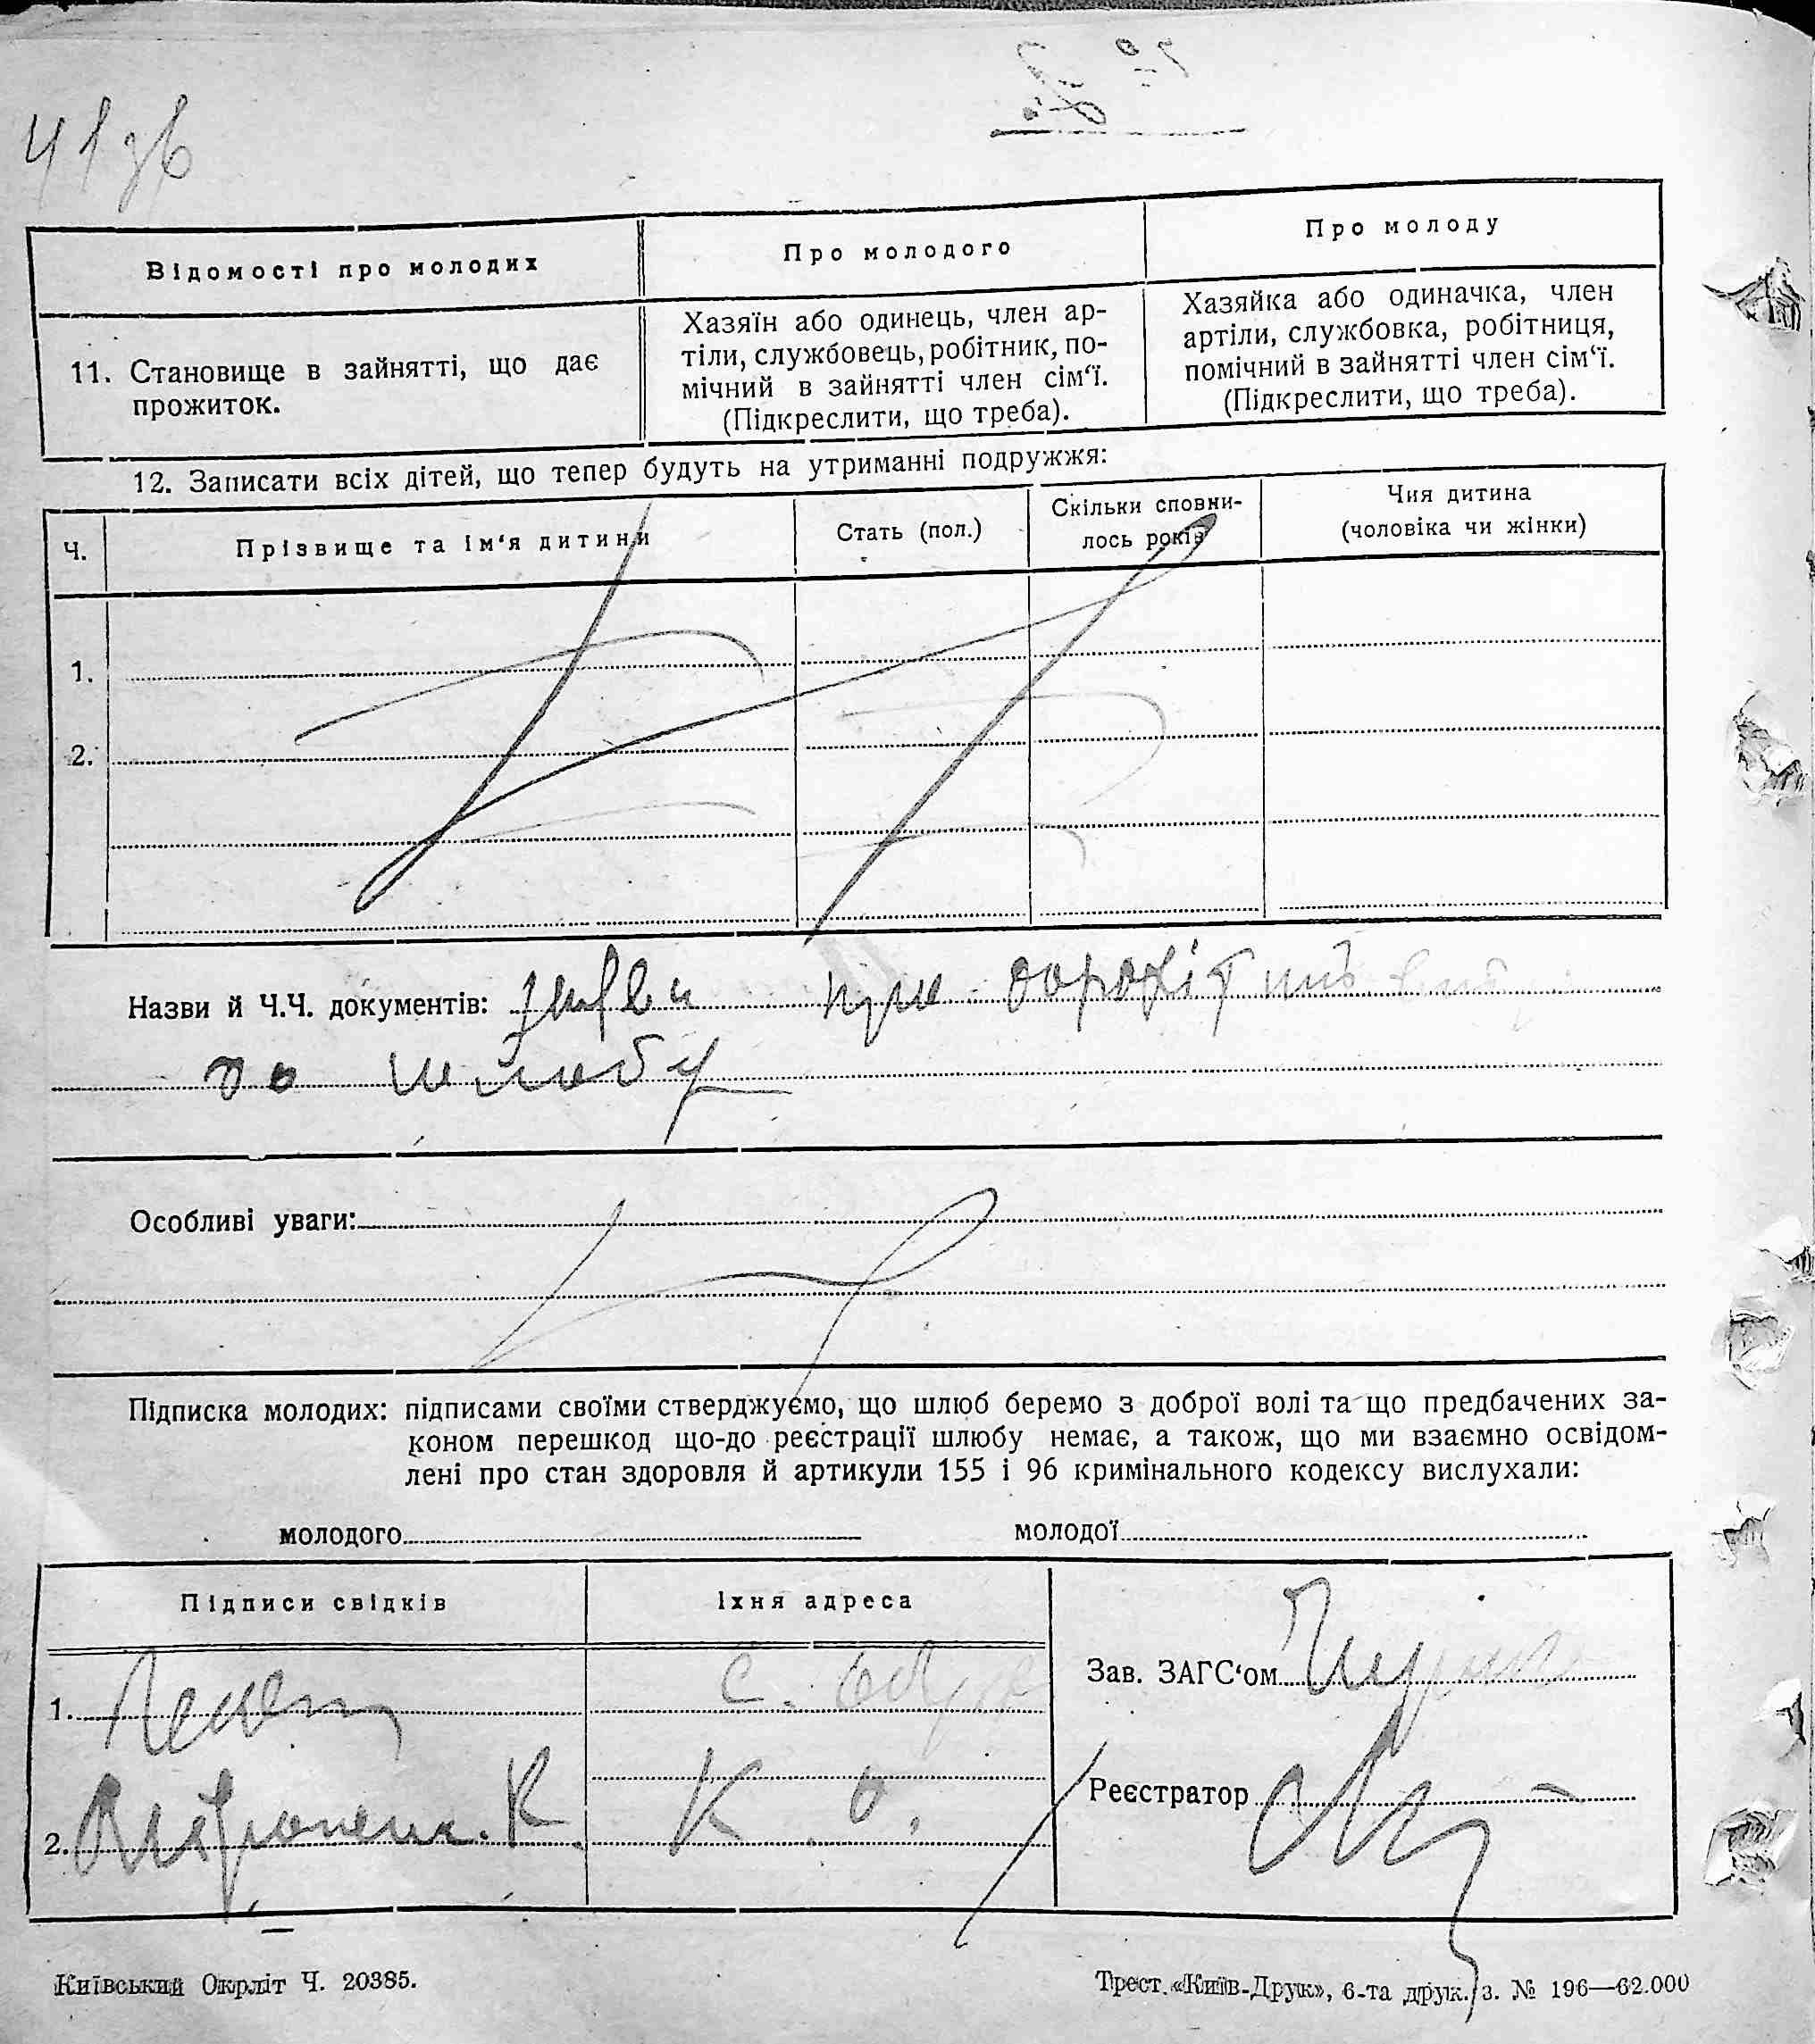 41 зв
Відомості про молодих
Про молодого
Про молоду
11. Становище в зайнятті, що дає
прожиток.
Хазяїн або одинець, член ар-
тіли, службовець, робітник, по-
мічний в зайнятті член сім‘ї.
(Підкреслити, що треба).
Хазяйка або одиначка, член
артіли, службовка, робітниця,
помічний в зайнятті член сім‘ї.
(Підкреслити, що треба).
12. Записати всіх дітей, що тепер будуть на утриманні подружжя:
Ч.
Прізвище та ім‘я дитини
Стать (пол.)
Скільки сповни-
лось років
Чия дитина
(чоловіка чи жінки)
1.
2.
Назви й Ч.Ч. документів: заяви про
до шлюбу
Особливі уваги:
Підписка молодих: підписами своїми стверджуємо, що шлюб беремо з доброї волі та що предбачених за-
коном перешкод що-до реєстрації шлюбу немає, а також, що ми взаємно освідом-
лені про стан здоровля й артикули 155 і 96 кримінального кодексу вислухали:
молодого
молодої
Підписи свідків
Їхня адреса
1.
с.
2. К.
К. О.
Зав. ЗАГС‘ом
Реєстратор
Київський Окрліт Ч. 20385.
Трест. «Київ-Друк», 6-та друк. з. № 196—62.000